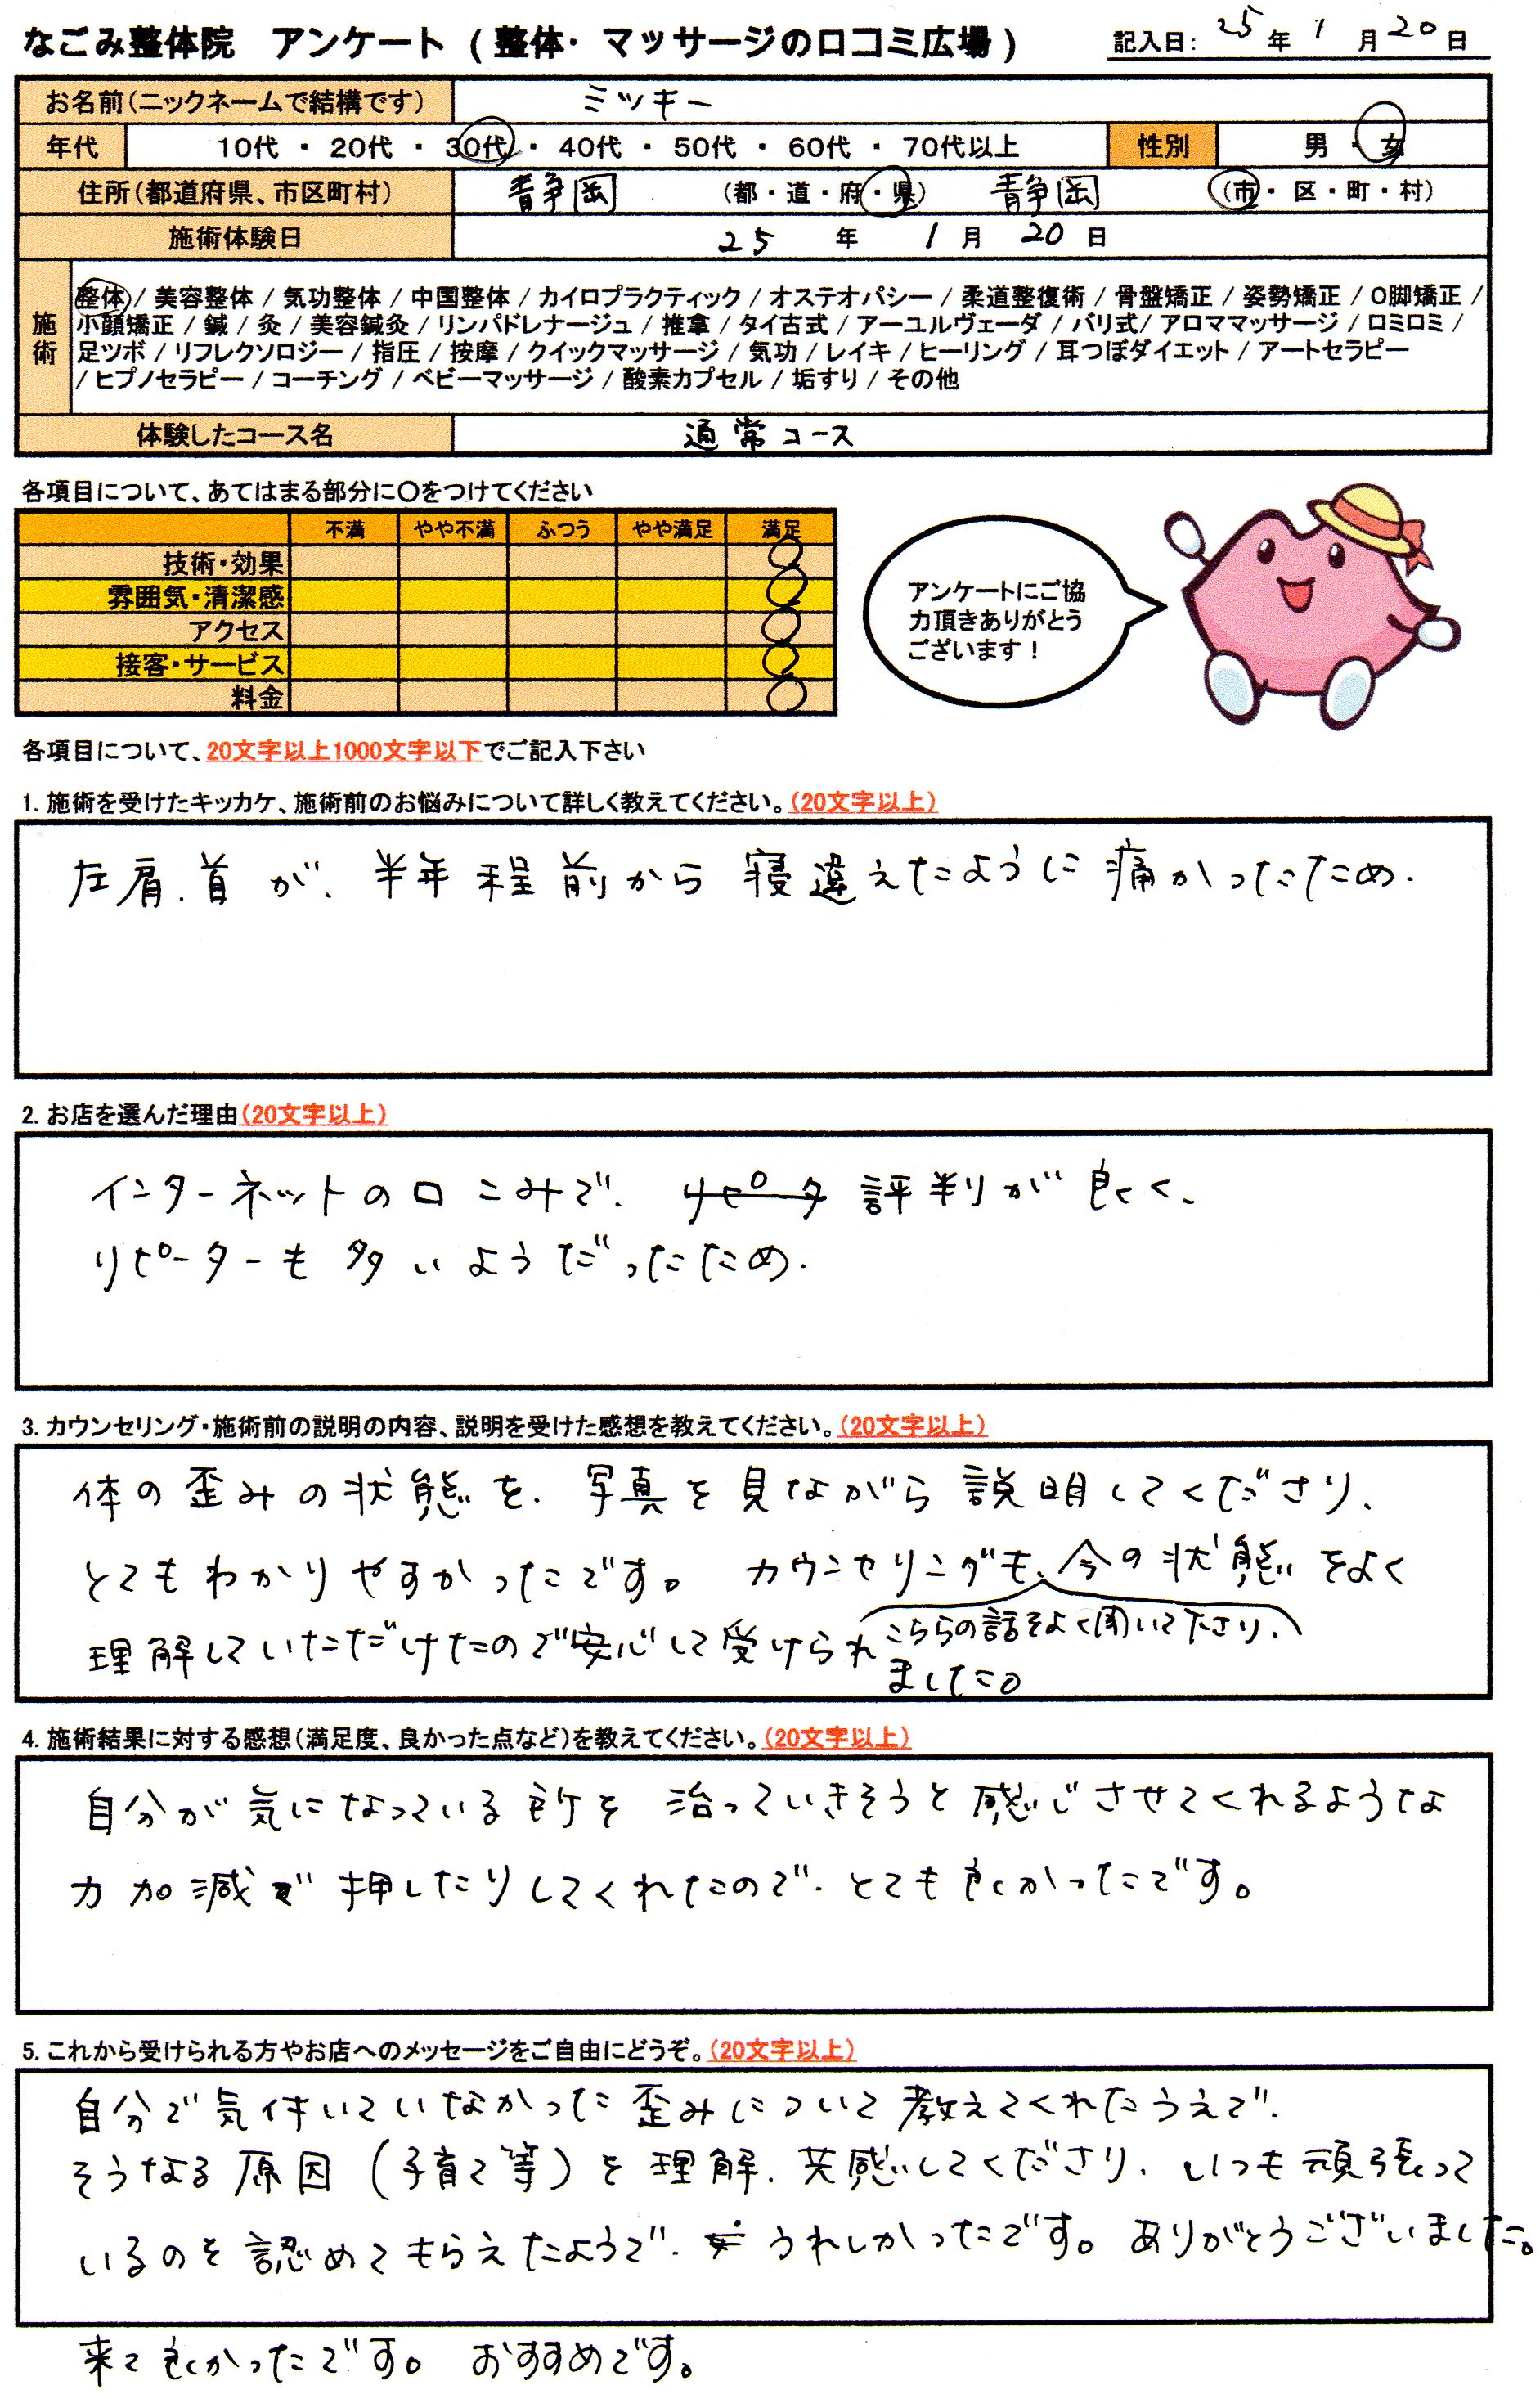 なごみ整体院　アンケート（整体・マッサージの口コミ広場）
記入日: 25年1月20日
お名前(ニックネームで結構です) ミッキー
年代 10代 ・ 20代 ・ 30代 ・ 40代 ・ 50代 ・ 60代 ・ 70代以上 性別 男 ・ 女
住所(都道府県、市区町村) 静岡 (都・道・府・県) 静岡 (市・区・町・村)
施術体験日 25 年 1 月 20 日
施術
整体 / 美容整体 / 気功整体 / 中国整体 / カイロプラクティック / オステオパシー / 柔道整復術 / 骨盤矯正 / 姿勢矯正 / O脚矯正 /
小顔矯正 / 鍼 / 灸 / 美容鍼灸 / リンパドレナージュ / 推拿 / タイ古式 / アーユルヴェーダ / バリ式 / アロママッサージ / ロミロミ /
足ツボ / リフレクソロジー / 指圧 / 按摩 / クイックマッサージ / 気功 / レイキ / ヒーリング / 耳つぼダイエット / アートセラピー
/ ヒプノセラピー / コーチング / ベビーマッサージ / 酸素カプセル / 垢すり / その他
体験したコース名 通常コース
各項目について、あてはまる部分に○をつけてください
不満 やや不満 ふつう やや満足 満足
技術・効果 ○
雰囲気・清潔感 ○
アクセス ○
接客・サービス ○
料金 ○
アンケートにご協
力頂きありがとう
ございます！
各項目について、20文字以上1000文字以下でご記入下さい
1. 施術を受けたキッカケ、施術前のお悩みについて詳しく教えてください。(20文字以上)
左肩.首が、半年程前から寝違えたように痛かったため.
2. お店を選んだ理由(20文字以上)
インターネットの口こみで、リピータ 評判が良く、
リピーターも多いようだったため.
3. カウンセリング・施術前の説明の内容、説明を受けた感想を教えてください。(20文字以上)
体の歪みの状態を、写真を見ながら説明してくださり、
とてもわかりやすかったです。 カウンセリングも、今の状態をよく
こちらの話をよく聞いて下さり、
理解していただけたので安心して受けられ
ました。
4. 施術結果に対する感想(満足度、良かった点など)を教えてください。(20文字以上)
自分が気になっている所を 治っていきそうと感じさせてくれるような
力加減で押したりしてくれたので、とても良かったです。
5. これから受けられる方やお店へのメッセージをご自由にどうぞ。(20文字以上)
自分で気付いていなかった歪みについて教えてくれたうえで、
そうなる原因(子育て等)を理解、共感してくださり、いつも頑張って
いるのを認めてもらえたようで、うれしかったです。ありがとうございました。
来て良かったです。 おすすめです。